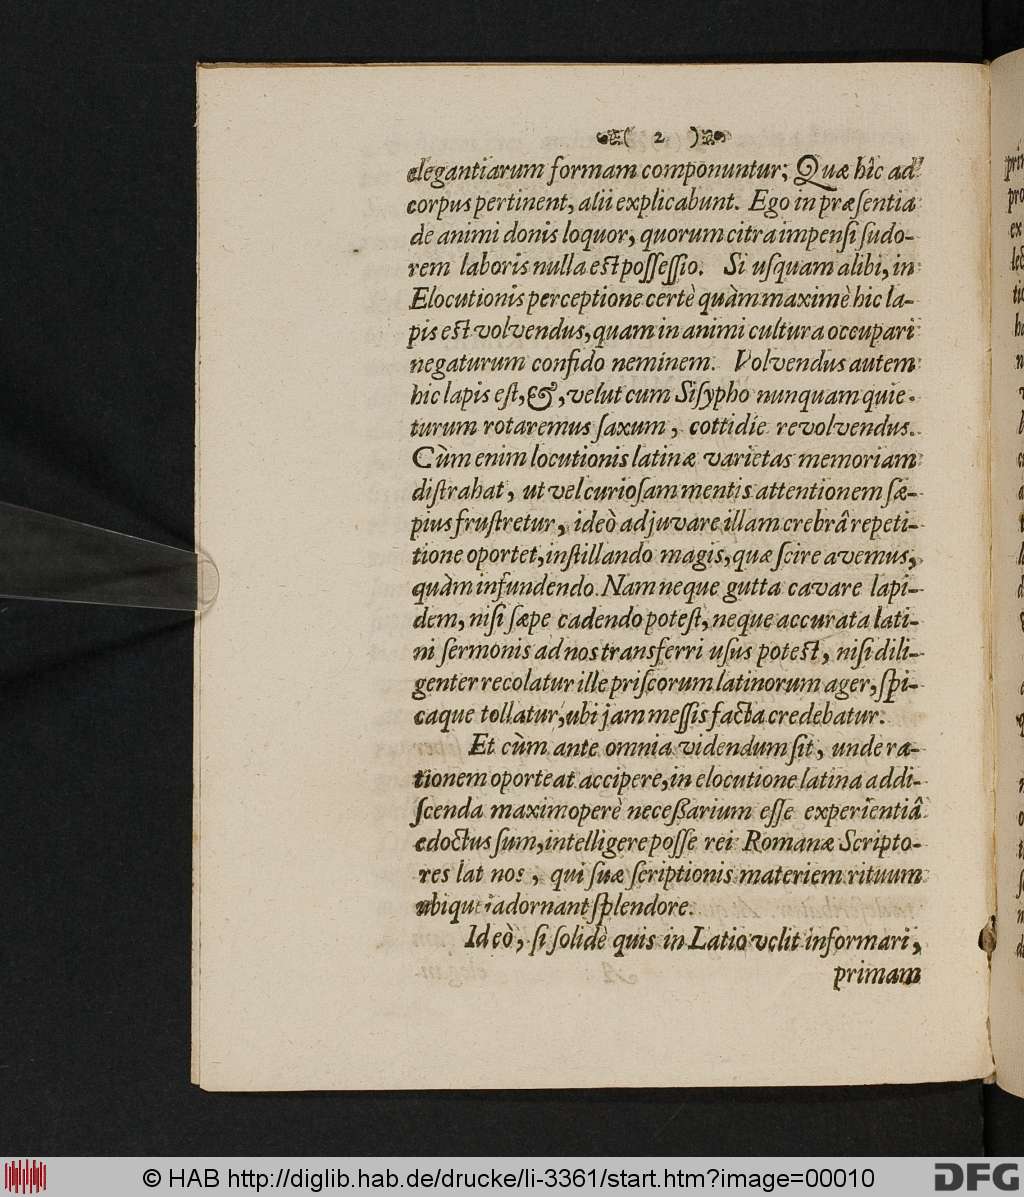 ( 2 )
elegantiarum formam componuntur; Quæ hîc ad
corpus pertinent, alii explicabunt. Ego in præsentia
de animi donis loquor, quorum citra impensi sudo-
rem laboris nulla est possessio. Si usquam alibi, in
Elocutionis perceptione certè quàm maximè hic la-
pis est volvendus, quam in animi cultura occupari
negaturum confido neminem. Volvendus autem
hic lapis est, &, velut cum Sisypho nunquam quie-
turum rotaremus saxum, cottidie revolvendus.
Cùm enim locutionis latinæ varietas memoriam
distrahat, ut vel curiosam mentis attentionem sæ-
pius frustretur, ideò adjuvare illam crebrâ repeti-
tione oportet, instillando magis, quæ scire avemus,
quàm infundendo. Nam neque gutta cavare lapi-
dem, nisi sæpe cadendo potest, neque accurata lati-
ni sermonis ad nos transferri usus potest, nisi dili-
genter recolatur ille priscorum latinorum ager, spi-
caque tollatur, ubi jam messis facta credebatur.
Et cùm ante omnia videndum sit, unde ra-
tionem oporteat accipere, in elocutione latina addi-
scenda maximoperè necessarium esse experientiâ
edoctus sum, intelligere posse rei Romanæ Scripto-
res lat nos, qui suæ scriptionis materiem rituum
ubique adornant splendore.
Ideò, si solidè quis in Latio velit informari,
primam
© HAB http://diglib.hab.de/drucke/li-3361/start.htm?image=00010
DFG